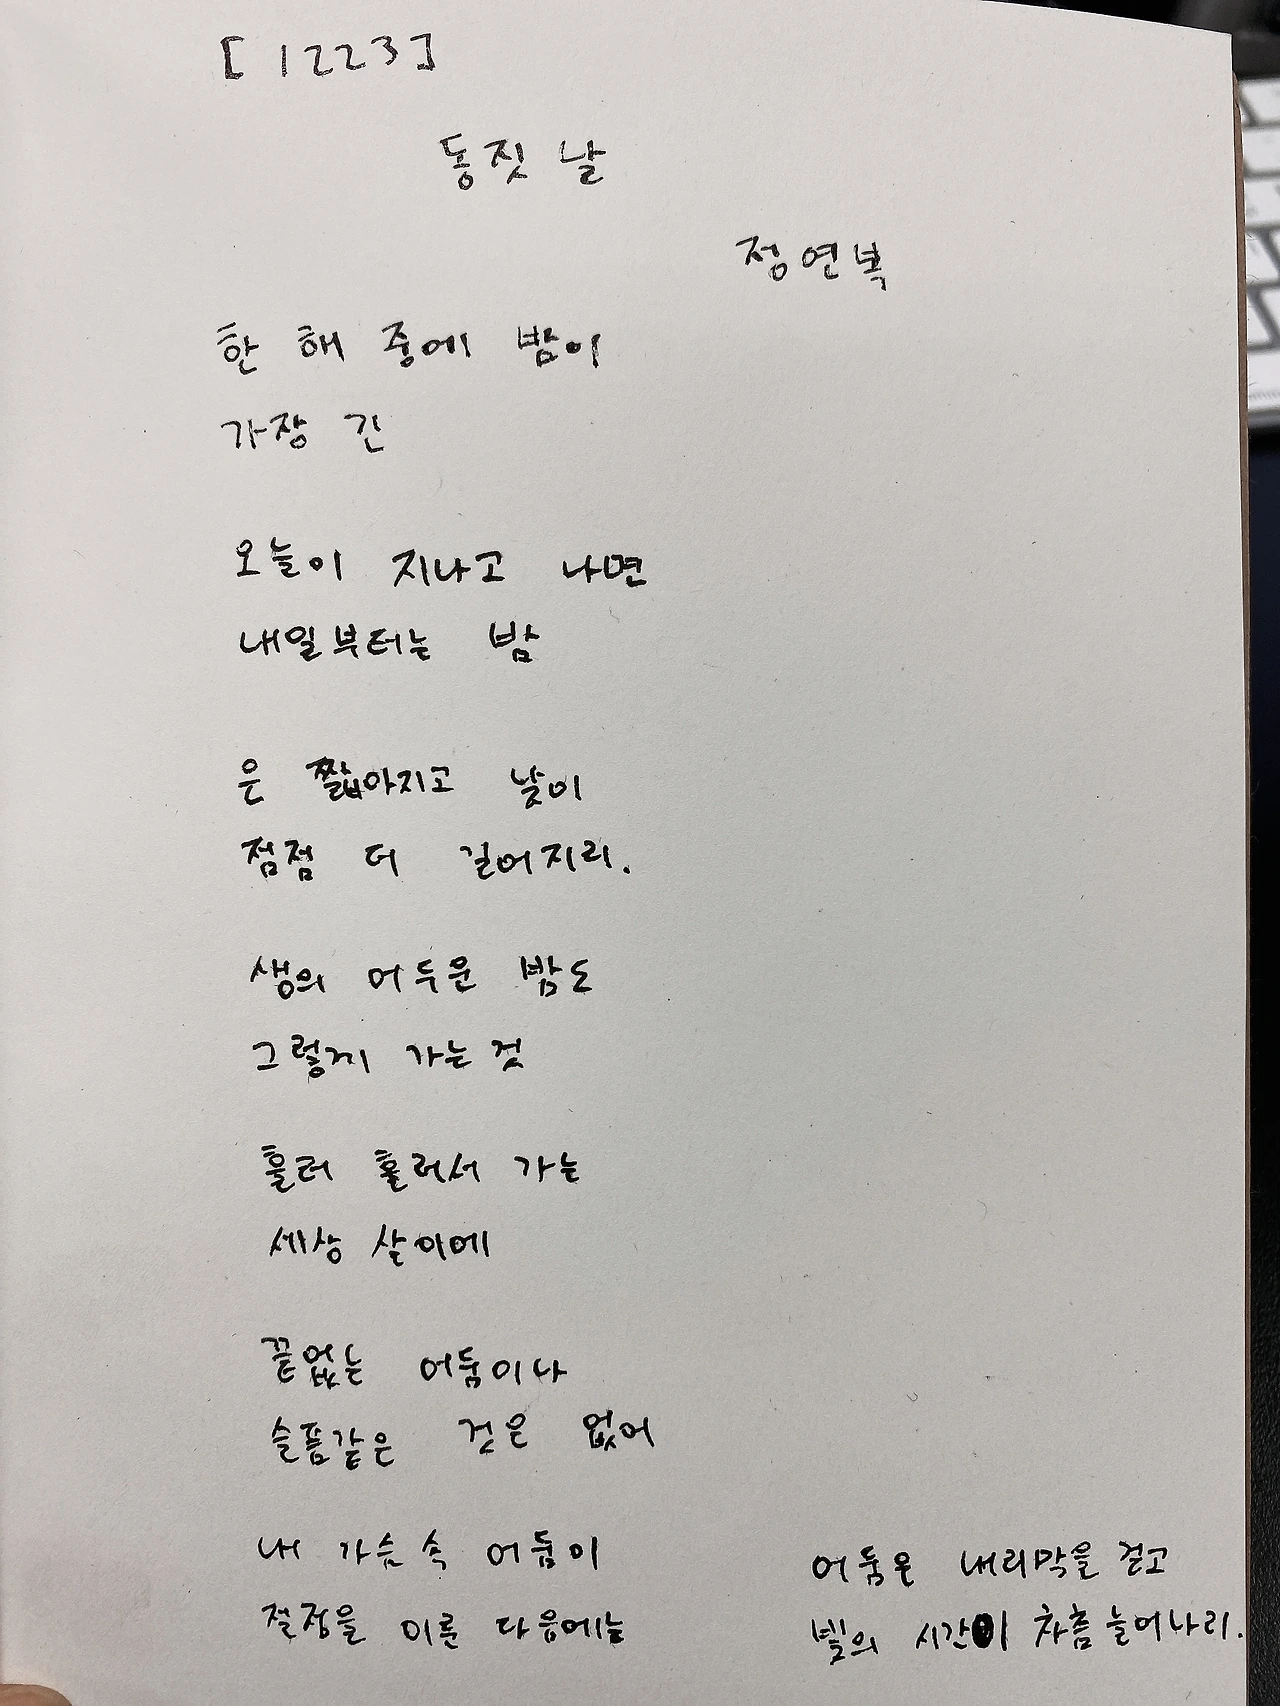 [1223]
동짓 날
정연복
한 해 중에 밤이
가장 긴
오늘이 지나고 나면
내일부터는 밤
은 짧아지고 낮이
점점 더 길어지리.
생의 어두운 밤도
그렇게 가는 것
흘러 흘러서 가는
세상 살이에
끝없는 어둠이나
슬픔같은 것은 없어
내 가슴 속 어둠이
절정을 이룬 다음에는
어둠은 내리막을 걷고
빛의 시간이 차츰 늘어나리.